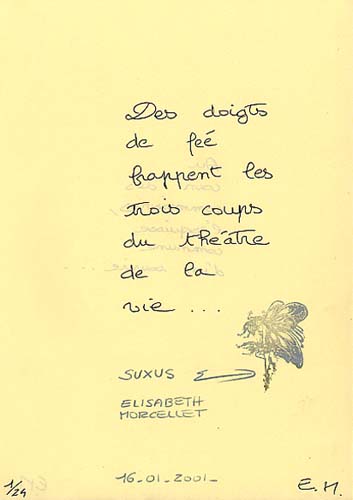 Des doigts
de feé
frappent les
trois coups
du théâtre
de la
vie ...
SUXUS
ELISABETH
MORCELLET
16-01-2001-
1/24
E.M.